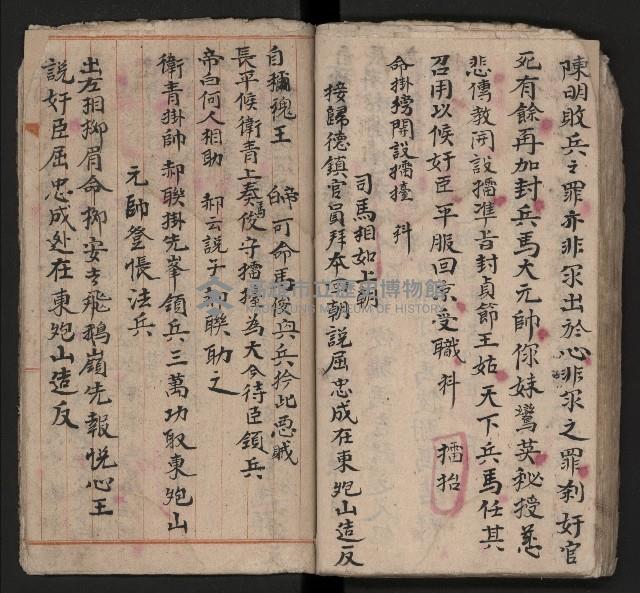 陳明敗兵之罪亦非尔出於心非尔之罪刹奸官
死有餘再加封兵馬大元帥你妹鸞英秘授慈
悲傳教開設擂準旨封貞節王姑天下兵馬任其
召用以候奸臣平服回京受職 科 擂抬
命掛榜開設擂擡 科
司馬相如上朝
接歸德鎮官員拜本進朝說屈忠成在東兇山造反
自擂魂王 帝可命馬俊與兵於此惡賊
長平候衛青上奏馬俊守擂擡為大令待臣領兵
帝白何人相助 郝云說子郝聯助之
衛青掛帥郝聯掛先峯領兵三萬功取東兇山
元帥登帳法兵
出左相柳眉命柳安去飛鵝嶺先報悦心王
説奸臣屈忠成处在東兇山造反
高雄市立歷史博物館
KAOHSIUNG MUSEUM OF HISTORY